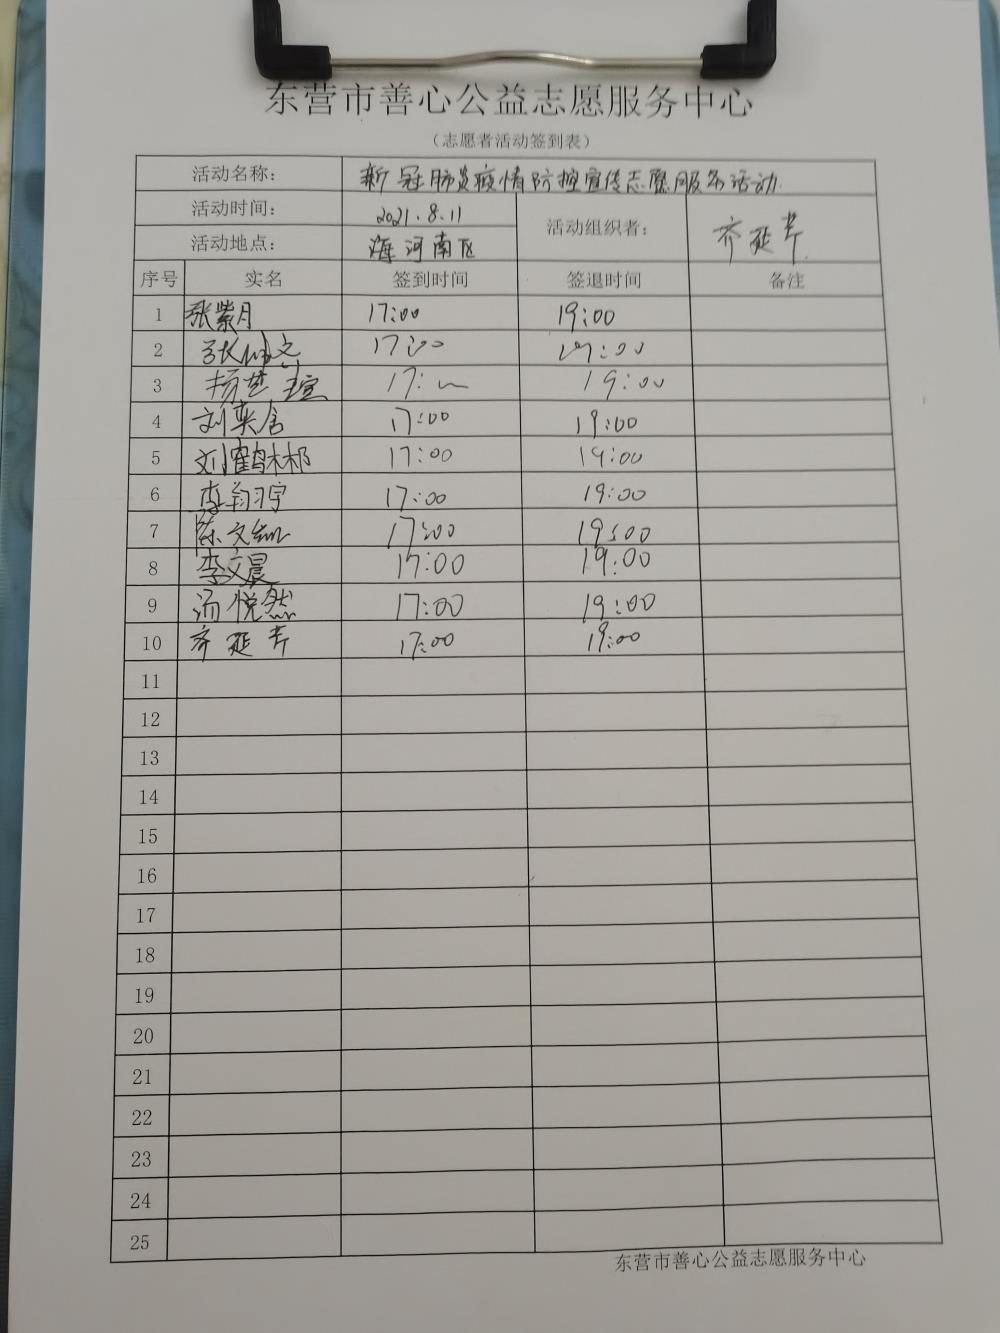 东营市善心公益志愿服务中心
（志愿者活动签到表）
活动名称： 新冠肺炎疫情防控宣传志愿服务活动
活动时间： 2021.8.11 活动组织者： 齐延芹
活动地点： 海河南区
序号 实名 签到时间 签退时间 备注
1 张紫月 17:00 19:00
2 17:00 19:00
3 杨楚瑄 17: 19:00
4 刘奕含 17:00 19:00
5 刘鹤彬 17:00 19:00
6 李翔宇 17:00 19:00
7 陈文 17:00 19:00
8 李文晨 17:00 19:00
9 汤悦然 17:00 19:00
10 齐延芹 17:00 19:00
11
12
13
14
15
16
17
18
19
20
21
22
23
24
25
东营市善心公益志愿服务中心